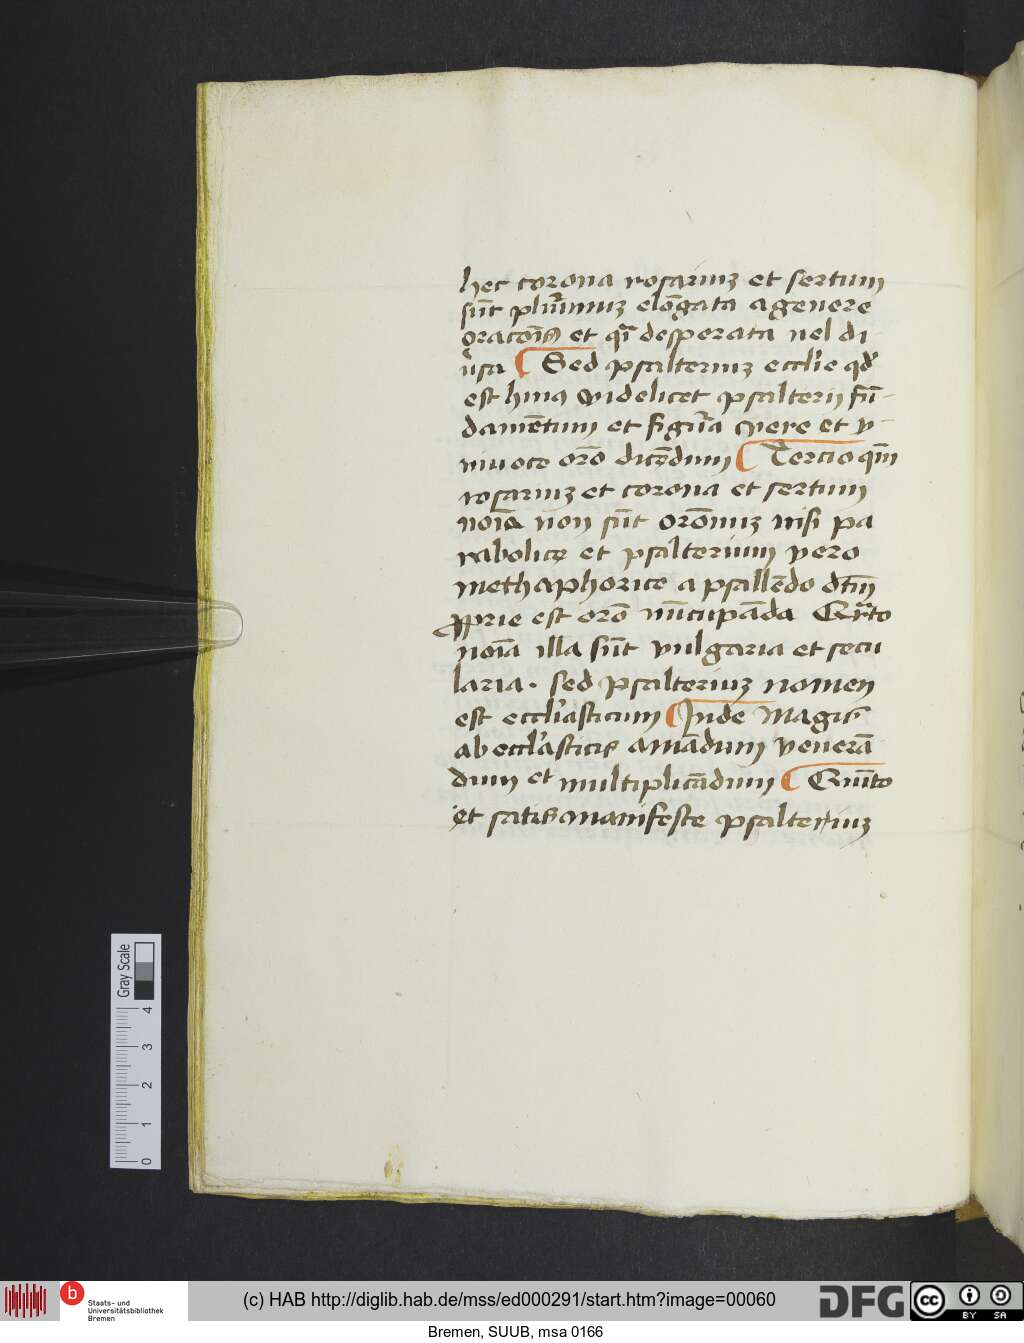 hec corona rosariuʒ et sertum
sūt plurīmuʒ elōgata a genere
oracōis et qͣi desperata uel di
uͥsa Sed psalteriuʒ ecclīe qd̓
est huiꝰ videlicet psalterij fū-
damētum et figūa vere et v-
niuoce orō dicēdum Tercio qm̄
rosariuʒ et corona et sertum
noīa non sūt orōnuʒ nisi pa
rabolice et psalterium vero
methaphorice a psallēdo dtm̄
ꝓprie est orō nūcupāda Qrͣto
noīa illa sūt vulgaria et secu
laria. Sed psalteriuʒ nomen
est eccl̓iasticum Inde magis
ab eccl̓iasticis amādum venerā
dum et multiplicādum Quīto
et satis manifeste psalteriuʒ
Gray Scale
4
3
2
1
0
b
Staats- und
Universitätsbibliothek
Bremen
(c) HAB http://diglib.hab.de/mss/ed000291/start.htm?image=00060
DFG
cc BY SA
Bremen, SUUB, msa 0166